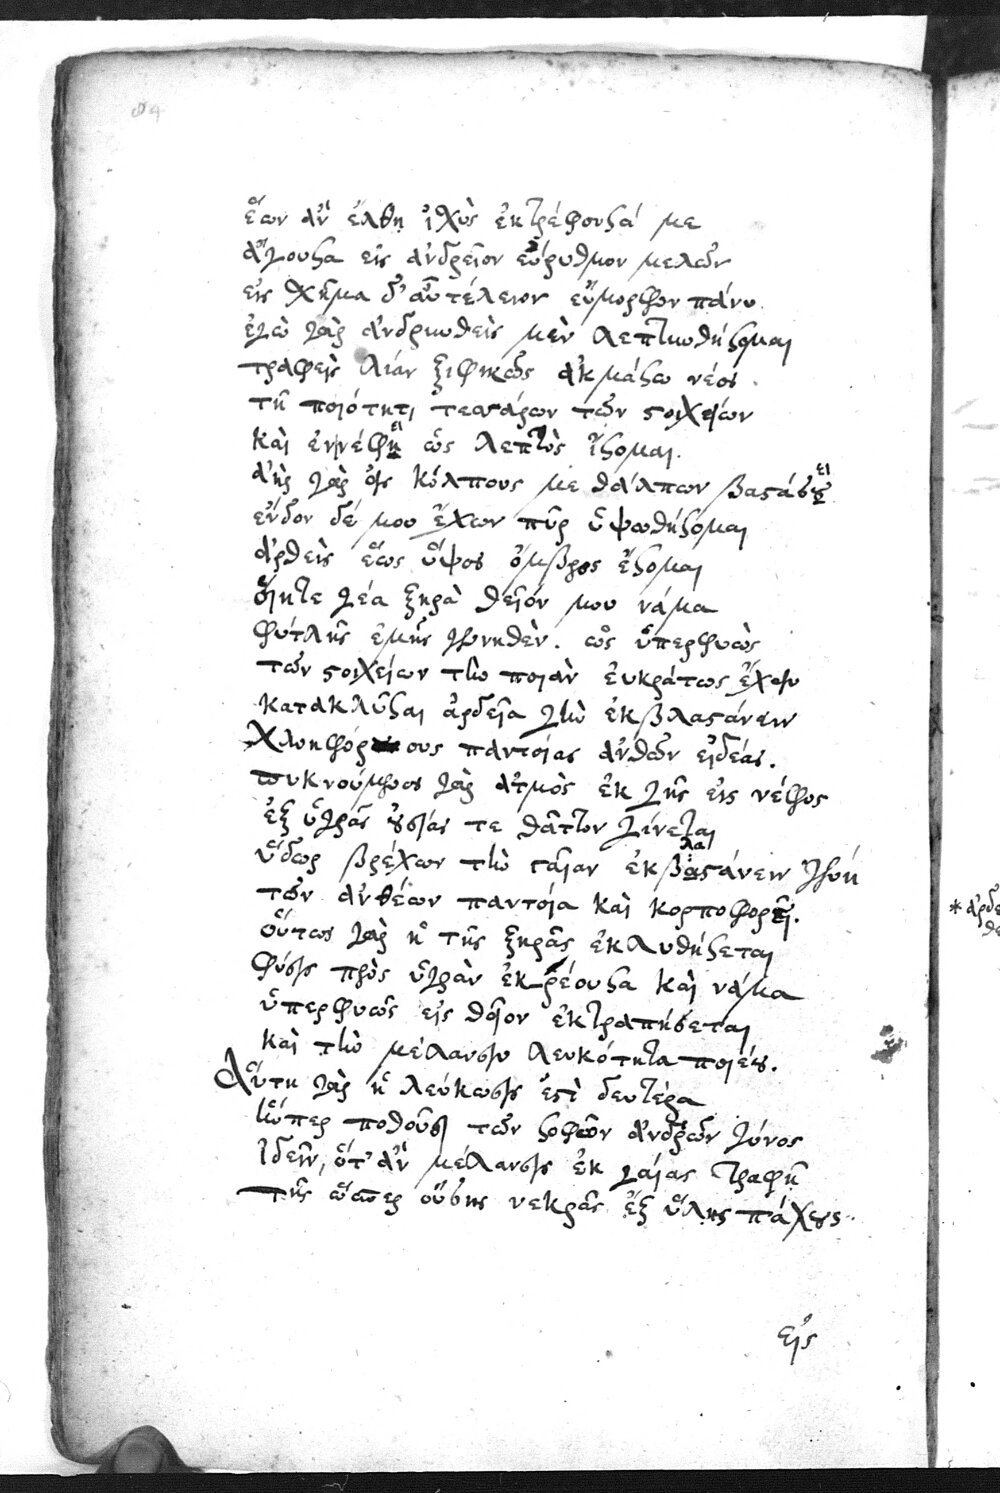 ἕων ἀν ἔλθη ἰσχὺς ἐκτρέφουσά με
ἄγουσα εἰς ἀνδρεῖον εὔρυθμον μελῶν
εἰς σχῆμα δ' αὐτέλειον εὔμορφον πάνυ.
ἐγὼ γὰρ ἀνδρωθεὶς μὲν λεπτωθήσομαι
τραφεὶς λίαν ξιφικῶς ἀκμάσω νέος.
τῆ ποιότητι τεσσάρων τῶν στοιχείων
καὶ ἐννέφη ὡς λεπτὸς ἥξομαι.
ἀὴρ γὰρ κόλπους με θάλπων βαστάσει
ἔνδον δέ μου ἔχων πῦρ ὑψωθήσομαι
ἀρθεὶς ἕως ὕψος ὄμβρος ἥξομαι
γέα ξηρὰ θεῖόν μου νάμα
φύτλης ἐμῆς γονηθὲν. ὡς ὑπερφυὼς
τῶν στοιχείων τὴν ποιὰν εὐκράτως ἔχειν
κατακλῦσαι ἀρδεῖα γῆν ἐκβλαστάνειν
χλοηφόρους παντοίας ἀνθῶν εἰδέας.
πυκνούμενος γὰρ ἀτμὸς ἐκ γῆς εἰς νέφος
ἐξ ὑγρᾶς οὐσίας τε θᾶττον γίνεται
ὕδωρ βρέχων τὴν γαῖαν ἐκβλαστάνειν
τῶν ἀνθέων παντοία καὶ κορποφορεῖ.
οὕτως γὰρ ἡ τῆς ξηρᾶς ἐκλυθήσεται
φύσις πρὸς ὑγρὰν ἐκρέουσα καὶ νάμα
ὑπερφυῶς εἰς θεῖον ἐκτραπήσεται
καὶ τὴν μέλανσιν λευκότητα ποιεῖν.
Αὕτη γὰρ ἡ λεύκωσις ἐστὶ δευτέρα
ἥνπερ ποθοῦσι τῶν σοφῶν ἀνδρῶν γόνος
ἰδεῖν, ὅτ' ἀν μέλανσις ἐκ γαίας τραφῆ
τῆς ὥσπερ οὔσης νεκρᾶς ἐξ ὕλης πάχους.
εἰς